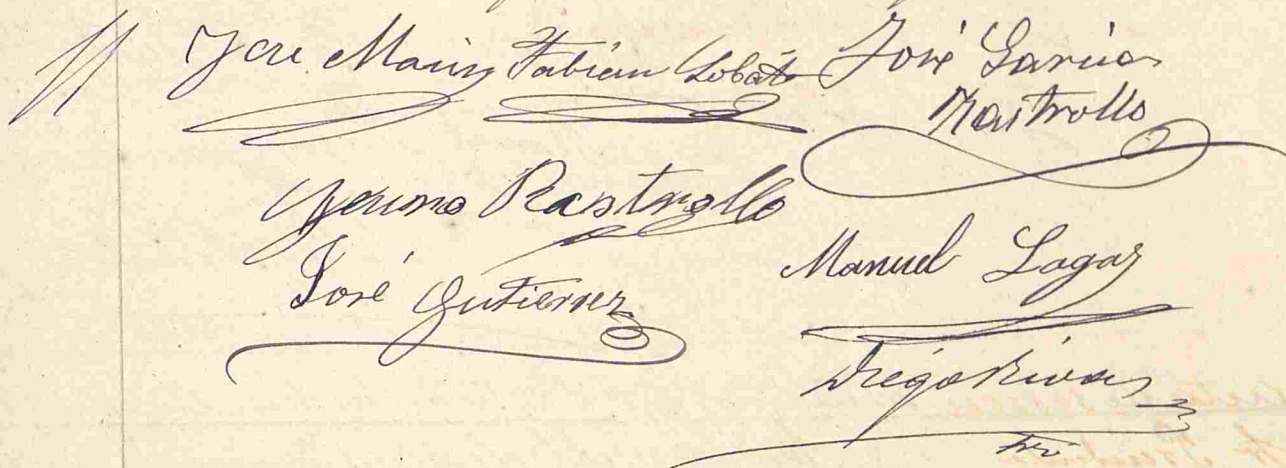 José Marin Fabian Lobato José Garcia
Rastrollo
Rastrollo
José Gutierrez
Manuel Lagar
Diego Rivas